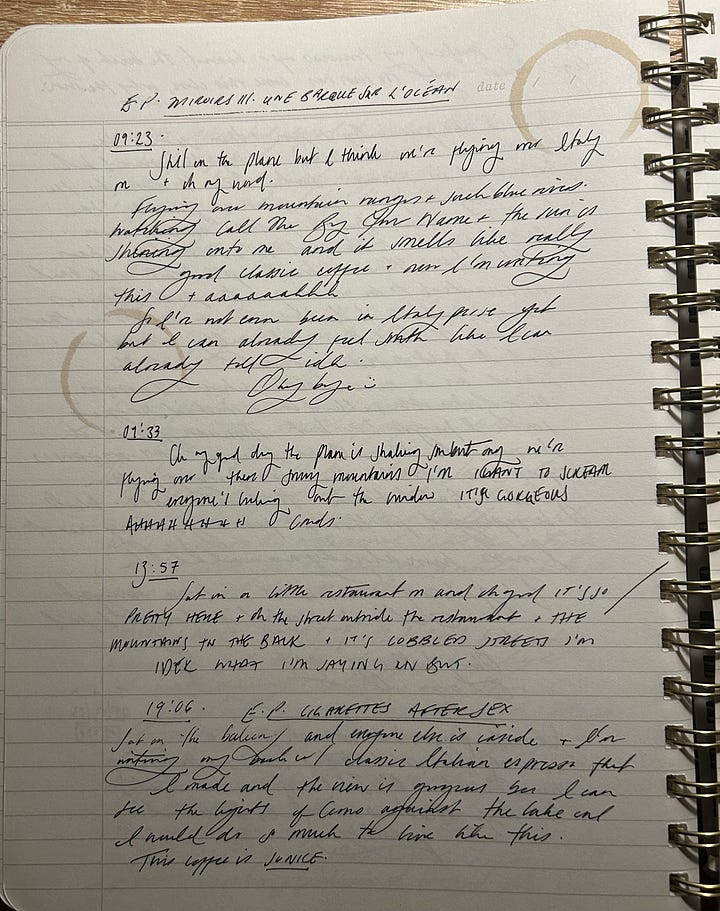 E.P. MIROIRS III. UNE BARQUE SUR L'OCÉAN
date / /
09:23.
Still on the plane but I think we're flying over Italy
rn + oh my word.
Flying over mountain ranges + such blue rivers.
watching Call Me By Your Name + the sun is
shining onto me and it smells like really
good classic coffee + now I'm writing
this + aaaaaahhh
So I've not even been in Italy yet
but I can already feel like I can
already tell idk.
Okay bye :)
09:33
Oh my god the plane is shaking but omg we're
flying over these snowy mountains I'm I WANT TO SCREAM
everyone's looking out the window IT'S GORGEOUS
AHHHHHHHH
13:57
Sat in a little restaurant rn and oh god IT'S SO
PRETTY HERE + oh the street outside the restaurant + THE
MOUNTAINS IN THE BACK + IT'S COBBLED STREETS I'M
IDEK WHAT I'M SAYING RN BUT.
19:06. E.P. CIGARETTES AFTER SEX
Sat on the balcony and everyone else is inside + I'm
writing my w/ classic Italian espresso that
I made and the view is gorgeous bc I can
see the lights of Como against the lake and
I would do so much to live like this.
This coffee is SO NICE.